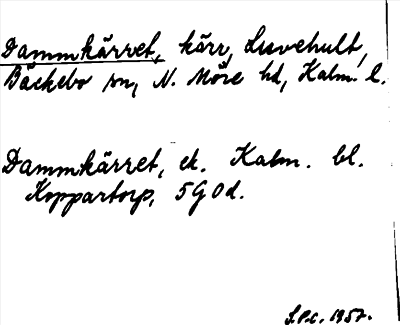 Dammkärret, kärr, Luvehult,
Bäckebo sn, N. Möre hd, Kalm. l.
Dammkärret, ek. Kalm. bl.
Koppartorp, 5G0d.
S.P.C. 1957.